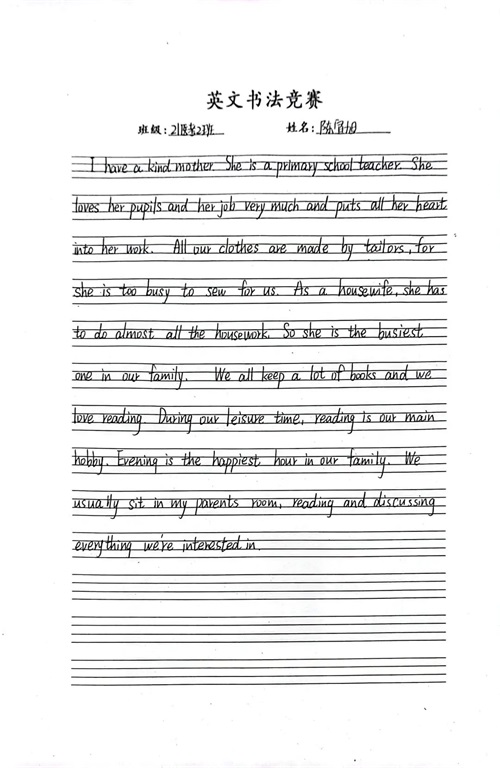 英文书法竞赛
班级: 姓名:
I have a kind mother. She is a primary school teacher. She
loves her pupils and her job very much and puts all her heart
into her work. All our clothes are made by tailors, for
she is too busy to sew for us. As a housewife, she has
to do almost all the housework. So she is the busiest
one in our family. We all keep a lot of books and we
love reading. During our leisure time, reading is our main
hobby. Evening is the happiest hour in our family. We
usually sit in my parents room, reading and discussing
everything we're interested in.